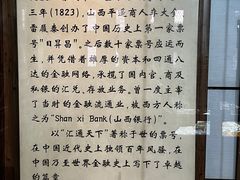 三年(1823),山西平遥商人弃大掌
雷履泰创办了中国历史上第一家票
号"日昇昌"。之后数十家票号应运而
生,并凭借着雄厚的资本和四通八
达的金融网络,承揽了国内官,商及
私银的汇兑、存放业务,曾一度主宰
了当时的金融流通业,被西方人称
之为"Shan xi Bank(山西银行)"。
以"汇通天下"著称于世的票号,
在中国近代史上独领百年风骚,在
中国乃至世界金融史上写下了卓越
的篇章